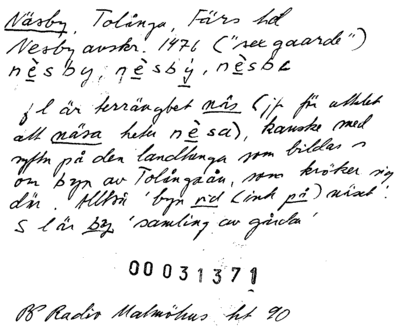 Näsby, Tolånga, Färs hd
Nesby avskr. 1476 ("sex gaarde")
nèsby, nèsbý, nèsbe
fl är terrängbet näs (jf för uttalet
att näsa heter nèsa), kanske med
syftn på den landtunga som bildas s
om byn av Tolångaån, som kröker sig
där. Alltså 'byn vid (ink på) näset'.
s l är by 'samling av gårdar'
00031371
BP Radio Malmöhus ht 90